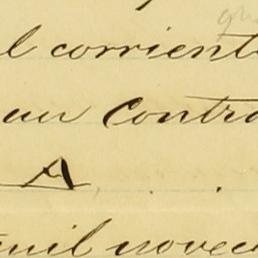 l corriente
an Contra
A
mil novec